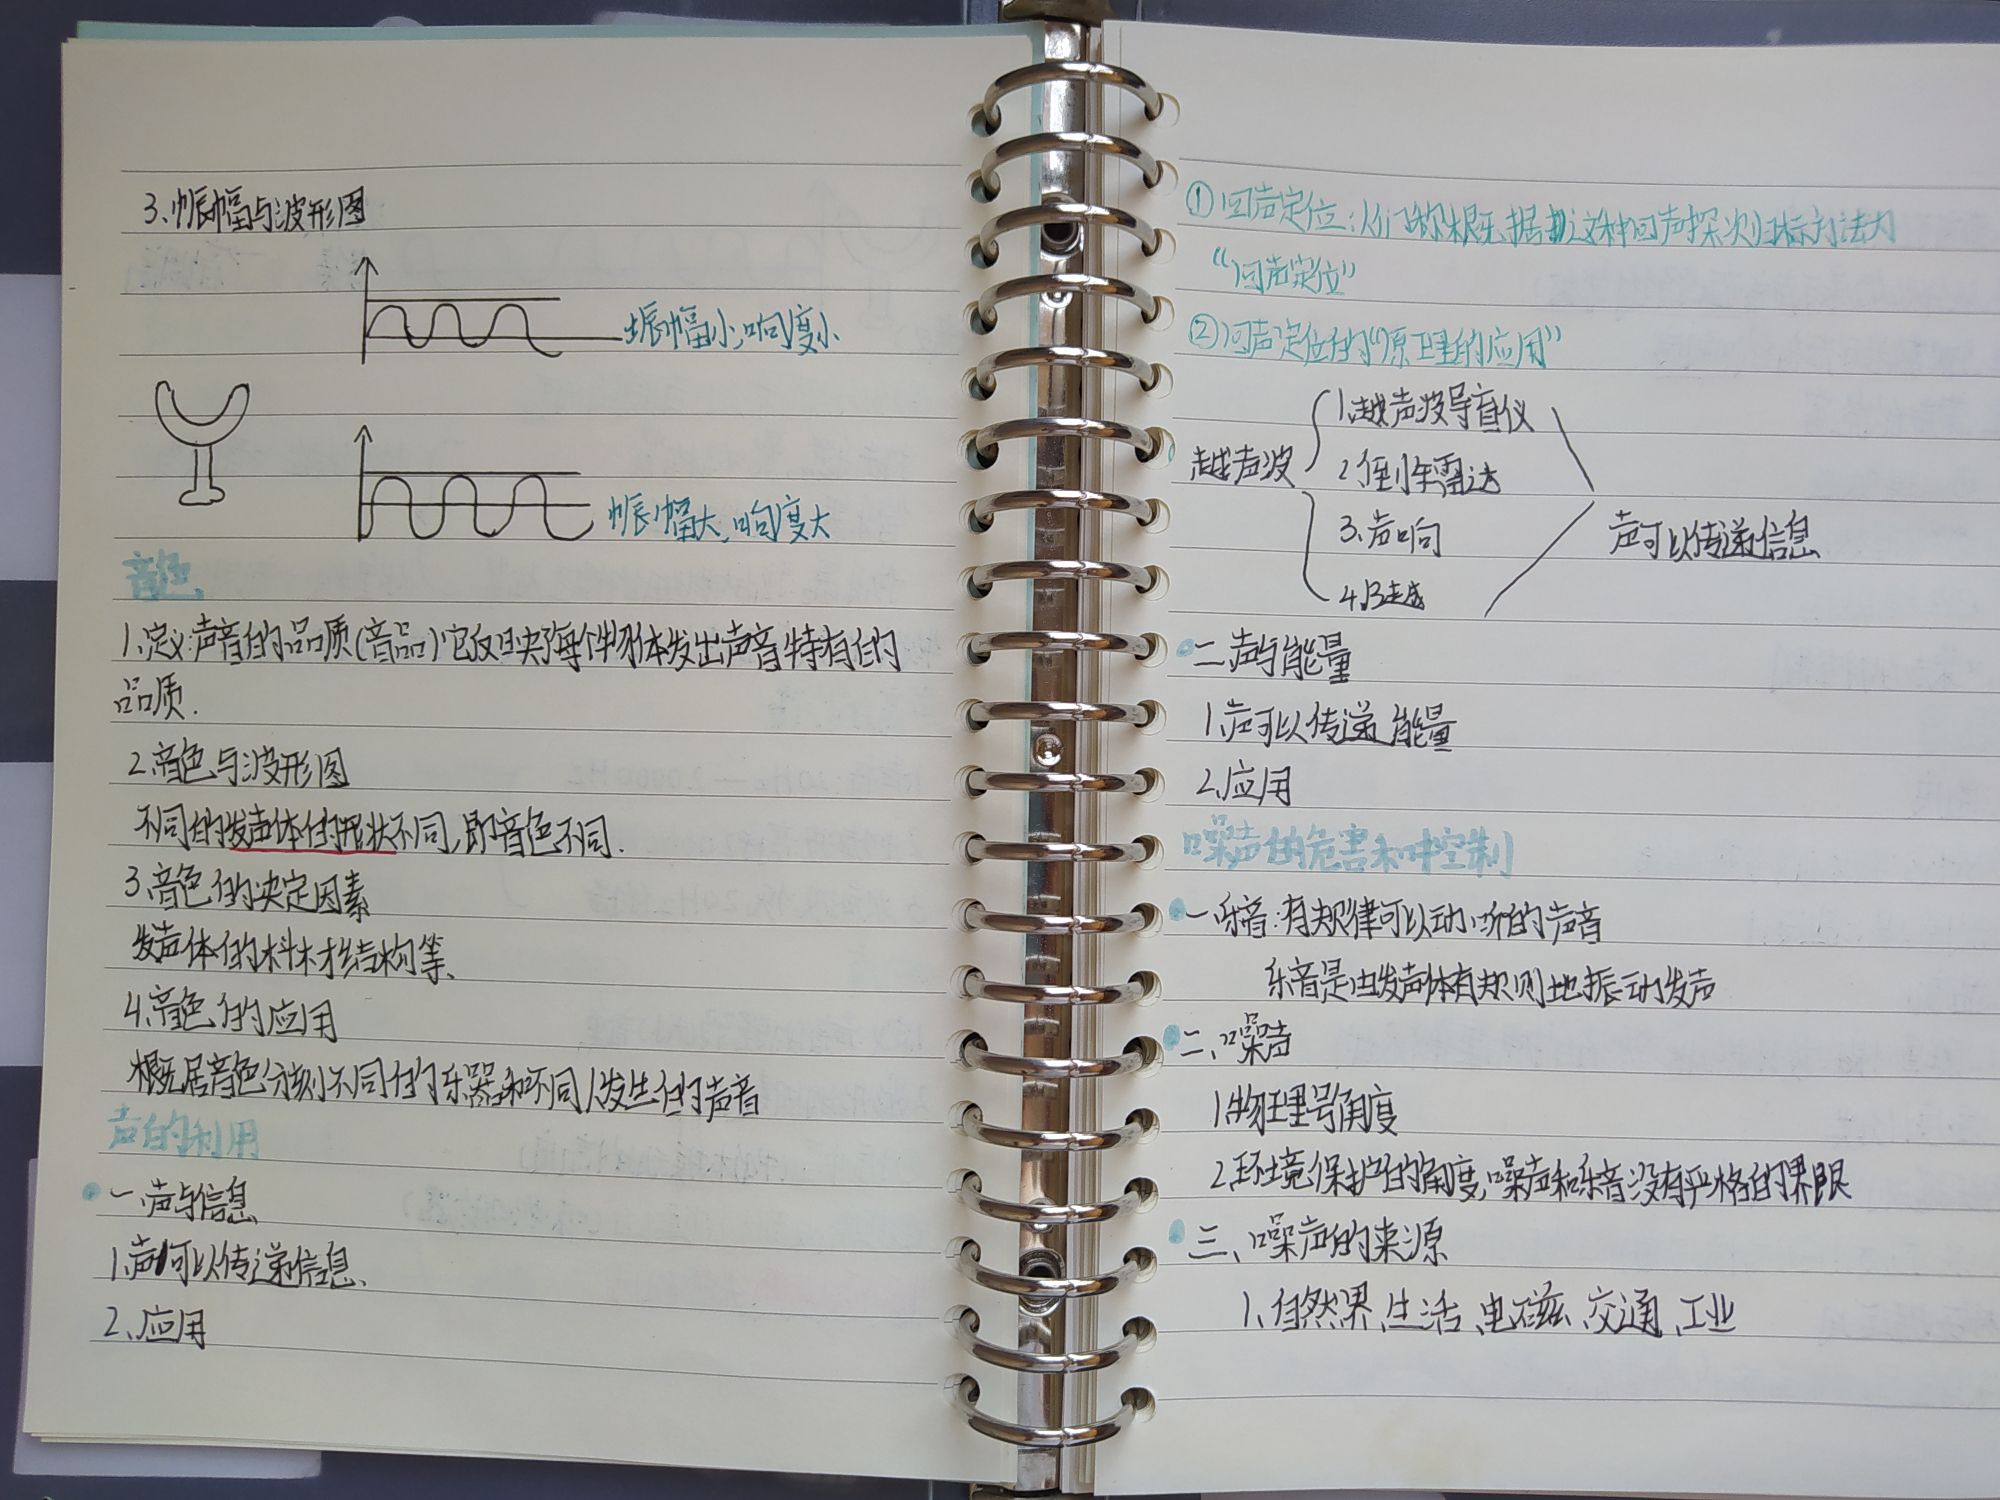 3、振幅与波形图
振幅小,响度小
振幅大,响度大
音色
1、定义:声音的品质(音品)它反日央每个物体发出声音特有的
品质.
2、音色与波形图
不同的发声体的形状不同,即音色不同.
3、音色的决定因素
发声体的料材结构等、
4、音色的应用
根据音色分刻不同的乐器和不同人发生的声音
声的利用
一、声与信息
1、声可以传递信息、
2、应用
①回声定位:人们称根据这种回声探次归标方法为
“回声定位”
②回声定位的“原理的应用”
越声波
1、越声波导盲仪
2、倒车雷达
3、声响
4、B越
声可以传递信息
二、声与能量
1、声可以传递能量
2、应用
噪声的危害和控制
一、乐音:有规律可以动听的声音
乐音是由发声体有规则地振动发声
二、噪声
1、物理号角度
2、环境保护的角度,噪声和乐音没有严格的界限
三、噪声的来源
1、自然界、生活、电磁、交通、工业